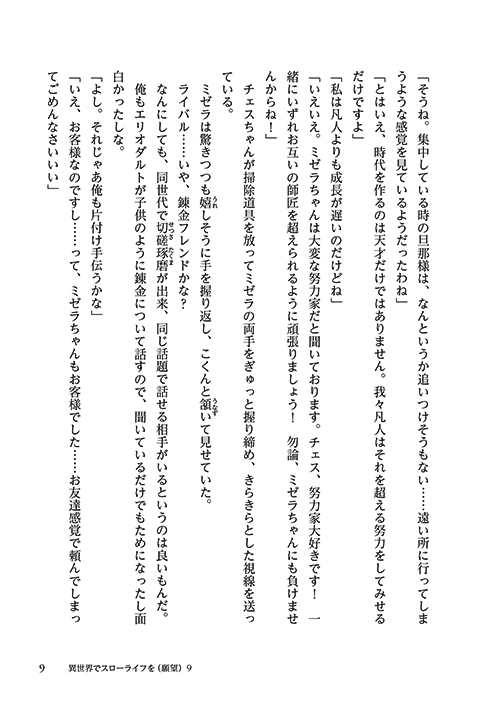 「そうね。集中している時の旦那様は、なんというか追いつけそうもない……遠い所に行ってしま
うような感覚を見ているようだったわね」
「とはいえ、時代を作るのは天才だけではありません。我々凡人はそれを超える努力をしてみせる
だけですよ」
「私は凡人よりも成長が遅いのだけどね」
「いえいえ。ミゼラちゃんは大変な努力家だと聞いております。チェス、努力家大好きです！　一
緒にいずれお互いの師匠を超えられるように頑張りましょう！　勿論、ミゼラちゃんにも負けませ
んからね！」
チェスちゃんが掃除道具を放ってミゼラの両手をぎゅっと握り締め、きらきらとした視線を送っ
ている。
ミゼラは驚きつつも嬉うれしそうに手を握り返し、こくんと頷うなずいて見せていた。
ライバル……いや、錬金フレンドかな？
なんにしても、同世代で切磋せっさ琢磨たくまが出来、同じ話題で話せる相手がいるというのは良いもんだ。
俺もエリオダルトが子供のように錬金について話すので、聞いているだけでもためになったし面
白かったしな。
「よし。それじゃあ俺も片付け手伝うかな」
「いえ、お客様なのですし……って、ミゼラちゃんもお客様でした……お友達感覚で頼んでしまっ
てごめんなさいいい」
9　異世界でスローライフを（願望）9